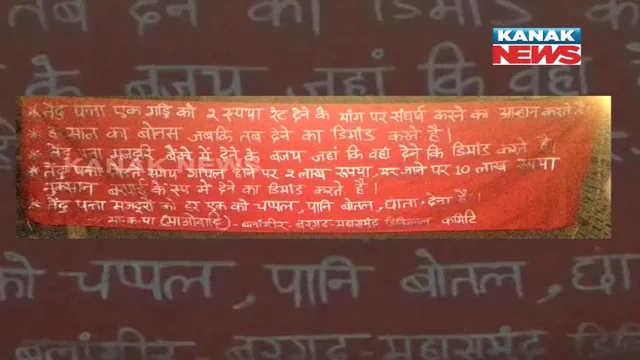 तब देने का डिमांड क
KANAK
NEWS
के बजय जहां कि वहां
* तेंदु पत्ता एक गड्डि को २ रूपया रेट देने के मांग पर संघर्ष करने का आह्वान करते हैं।
* साल का बोनस जबकि तब देने का डिमांड करते है।
* तेंदु पत्ता मजदुरि बैंको में देने के बजय जहां कि वहां देने कि डिमांड करते है।
KANAK NEWS
* तेंदु पत्ता तोड़ते समय घायल होने पर २ लाख रूपया, मर जाने पर 10 लाख रूपया
नुकसान के रूप में देने का डिमांड करते है।
* तेंदु पत्ता मजदुरों को हर एक को चप्पल, पानि बोतल, छाता देना है।
भा-क-पा (माओवादि) - बलांगीर - बरगढ़ - महासमुंद डिविजनल कमिटि
को चप्पल, पानि बोतल, छा
बलांगीर बरगढ़-महासमुंद डि